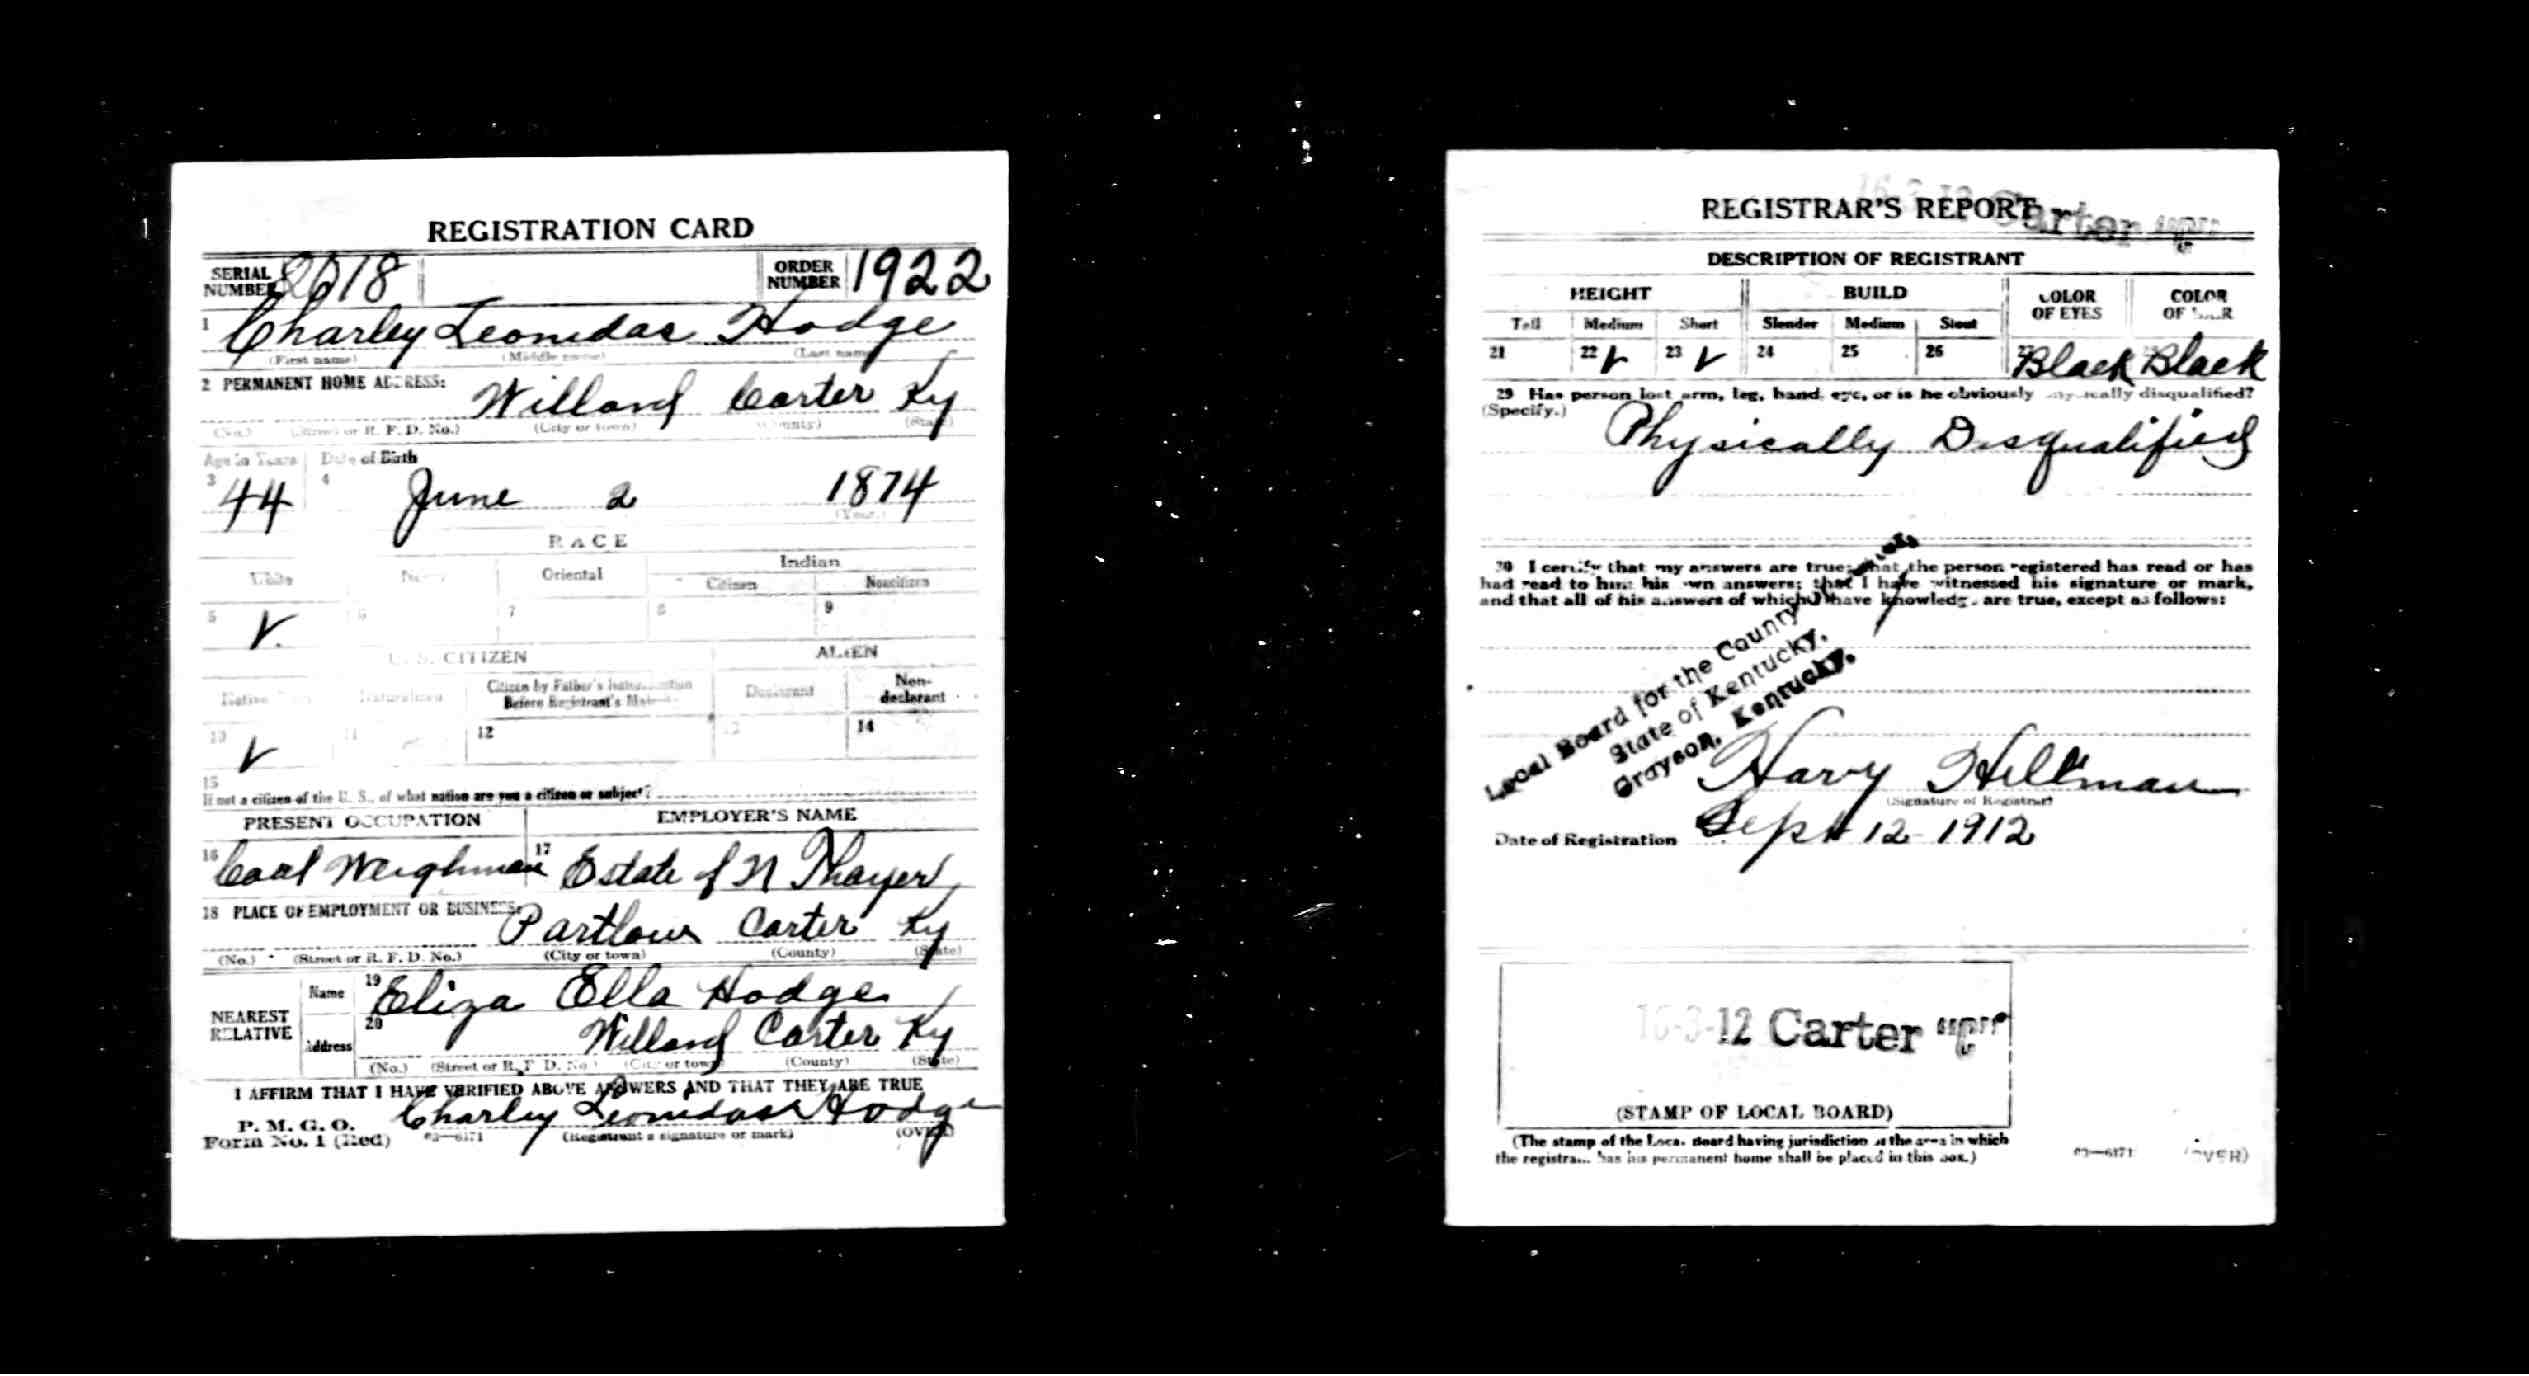 REGISTRATION CARD
SERIAL NUMBER 2618 ORDER NUMBER 1922
1 Charley Leonidas Hodge
(First name) (Middle name) (Last name)
2 PERMANENT HOME ADDRESS:
Willard Carter Ky
(No.) (Street or R. F. D. No.) (City or town) (County) (State)
Age in Years Date of Birth
3 44 4 June 2 1874
(Year.)
RACE
White Negro Oriental Indian
Citizen Noncitizen
5 V 6 7 8 9
U. S. CITIZEN ALIEN
Native Born Naturalized Citizen by Father's Naturalization Before Registrant's Majority Declarant Non-declarant
10 V 11 12 13 14
15
If not a citizen of the U. S., of what nation are you a citizen or subject?
PRESENT OCCUPATION EMPLOYER'S NAME
16 Coal Weighman 17 Estate of N Thayer
18 PLACE OF EMPLOYMENT OR BUSINESS:
Partlow Carter Ky
(No.) (Street or R. F. D. No.) (City or town) (County) (State)
NEAREST RELATIVE Name 19 Eliza Ella Hodge
Address 20 Willard Carter Ky
(No.) (Street or R. F. D. No.) (City or town) (County) (State)
I AFFIRM THAT I HAVE VERIFIED ABOVE ANSWERS AND THAT THEY ARE TRUE
P. M. G. O.
Form No. 1 (Red) 03—6171 Charley Leonidas Hodge
(Registrant's signature or mark) (OVER)
REGISTRAR'S REPORT
16-3-12 Carter
DESCRIPTION OF REGISTRANT
HEIGHT BUILD COLOR OF EYES COLOR OF HAIR
Tall Medium Short Slender Medium Stout
21 22 V 23 V 24 25 26 27 Black Black
29 Has person lost arm, leg, hand, eye, or is he obviously physically disqualified?
(Specify.)
Physically Disqualified
30 I certify that my answers are true; that the person registered has read or has
had read to him his own answers; that I have witnessed his signature or mark,
and that all of his answers of which I have knowledge are true, except as follows:
Local Board for the County
State of Kentucky,
Grayson, Kentucky.
Harvy Hillman
(Signature of Registrar)
Date of Registration Sept 12 1912
16-3-12 Carter
(STAMP OF LOCAL BOARD)
(The stamp of the Local Board having jurisdiction of the area in which
the registrant has his permanent home shall be placed in this box.)
03—6171 (OVER)